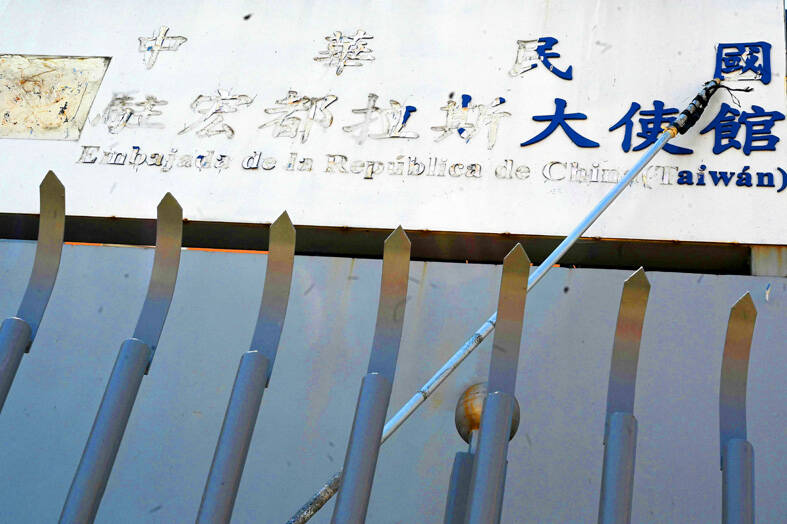 中華民國
駐宏都拉斯大使館
Embajada de la República de China(Taiwán)